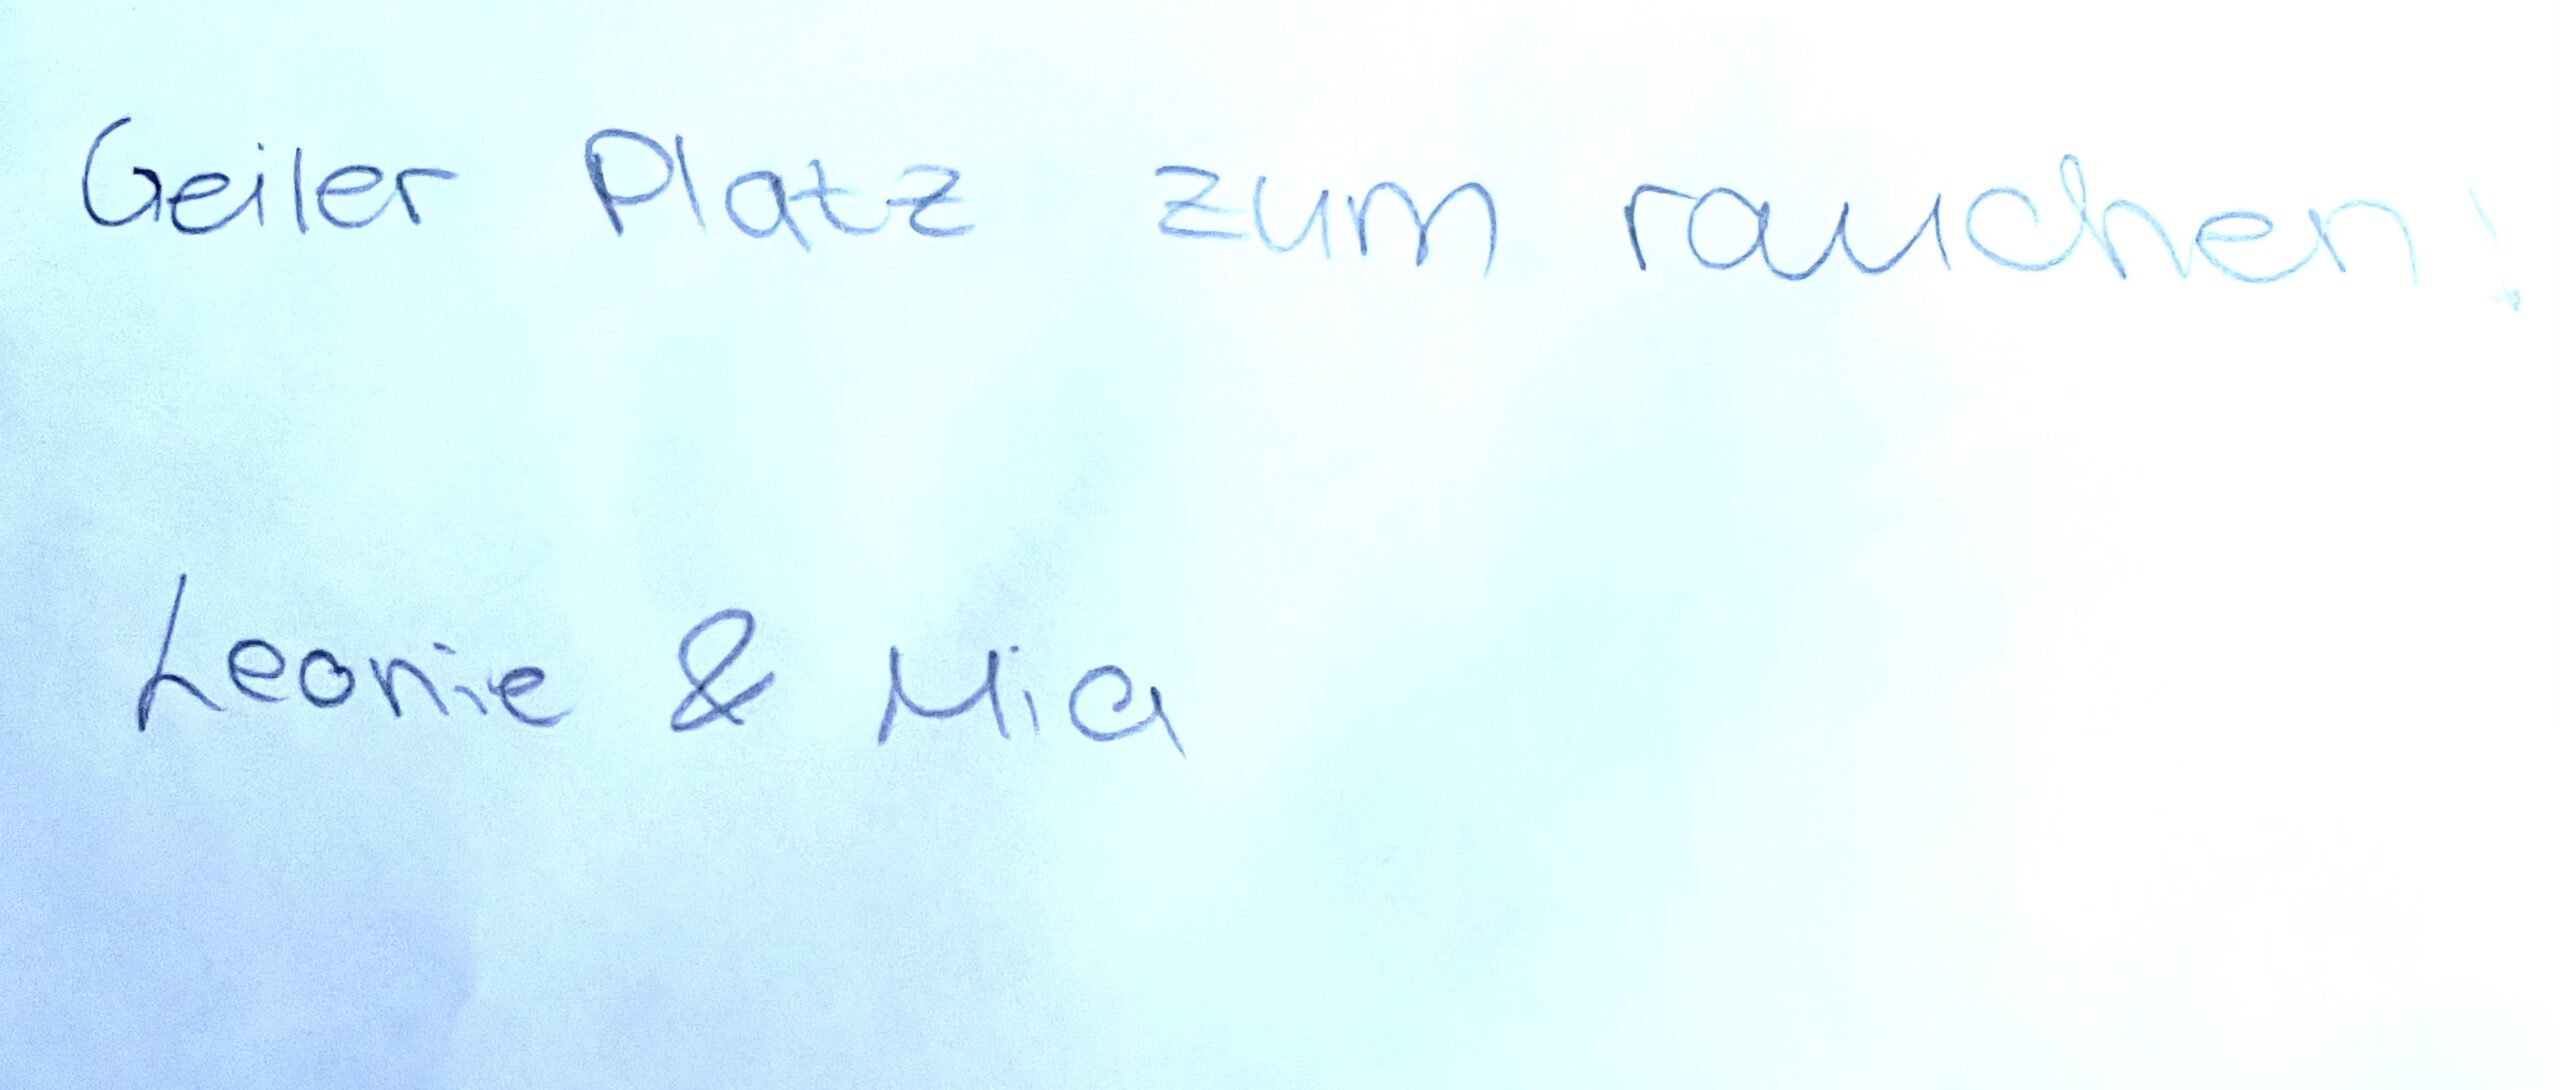 Geiler Platz zum rauchen!
Leonie & Mia